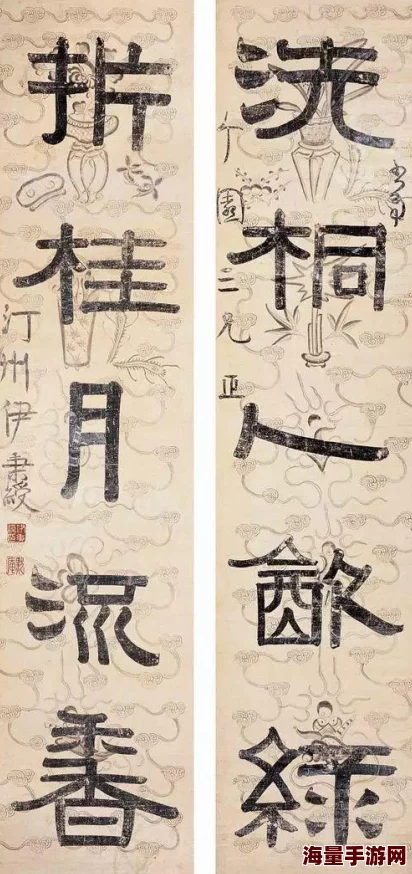 洗桐人㱃綠
園三兄正
折桂月流香
汀州伊秉綬
海量手游网